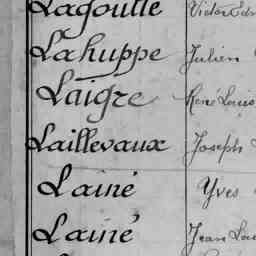 Lagoutte Victor Edm
Lahuppe Julien
Laigre René Louis
Laillevaux Joseph
Lainé Yves
Lainé Jean Lou